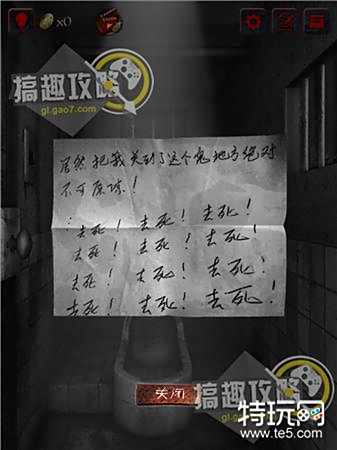 x0
搞趣攻略
gl.gao7.com
居然把我关到了这个鬼地方绝对
不可原谅!
去死! 去死! 去死!
去死! 去死! 去死!
去死! 去死! 去死!
去死! 去死! 去死!
关闭
搞趣攻略
特玩网
www.te5.com